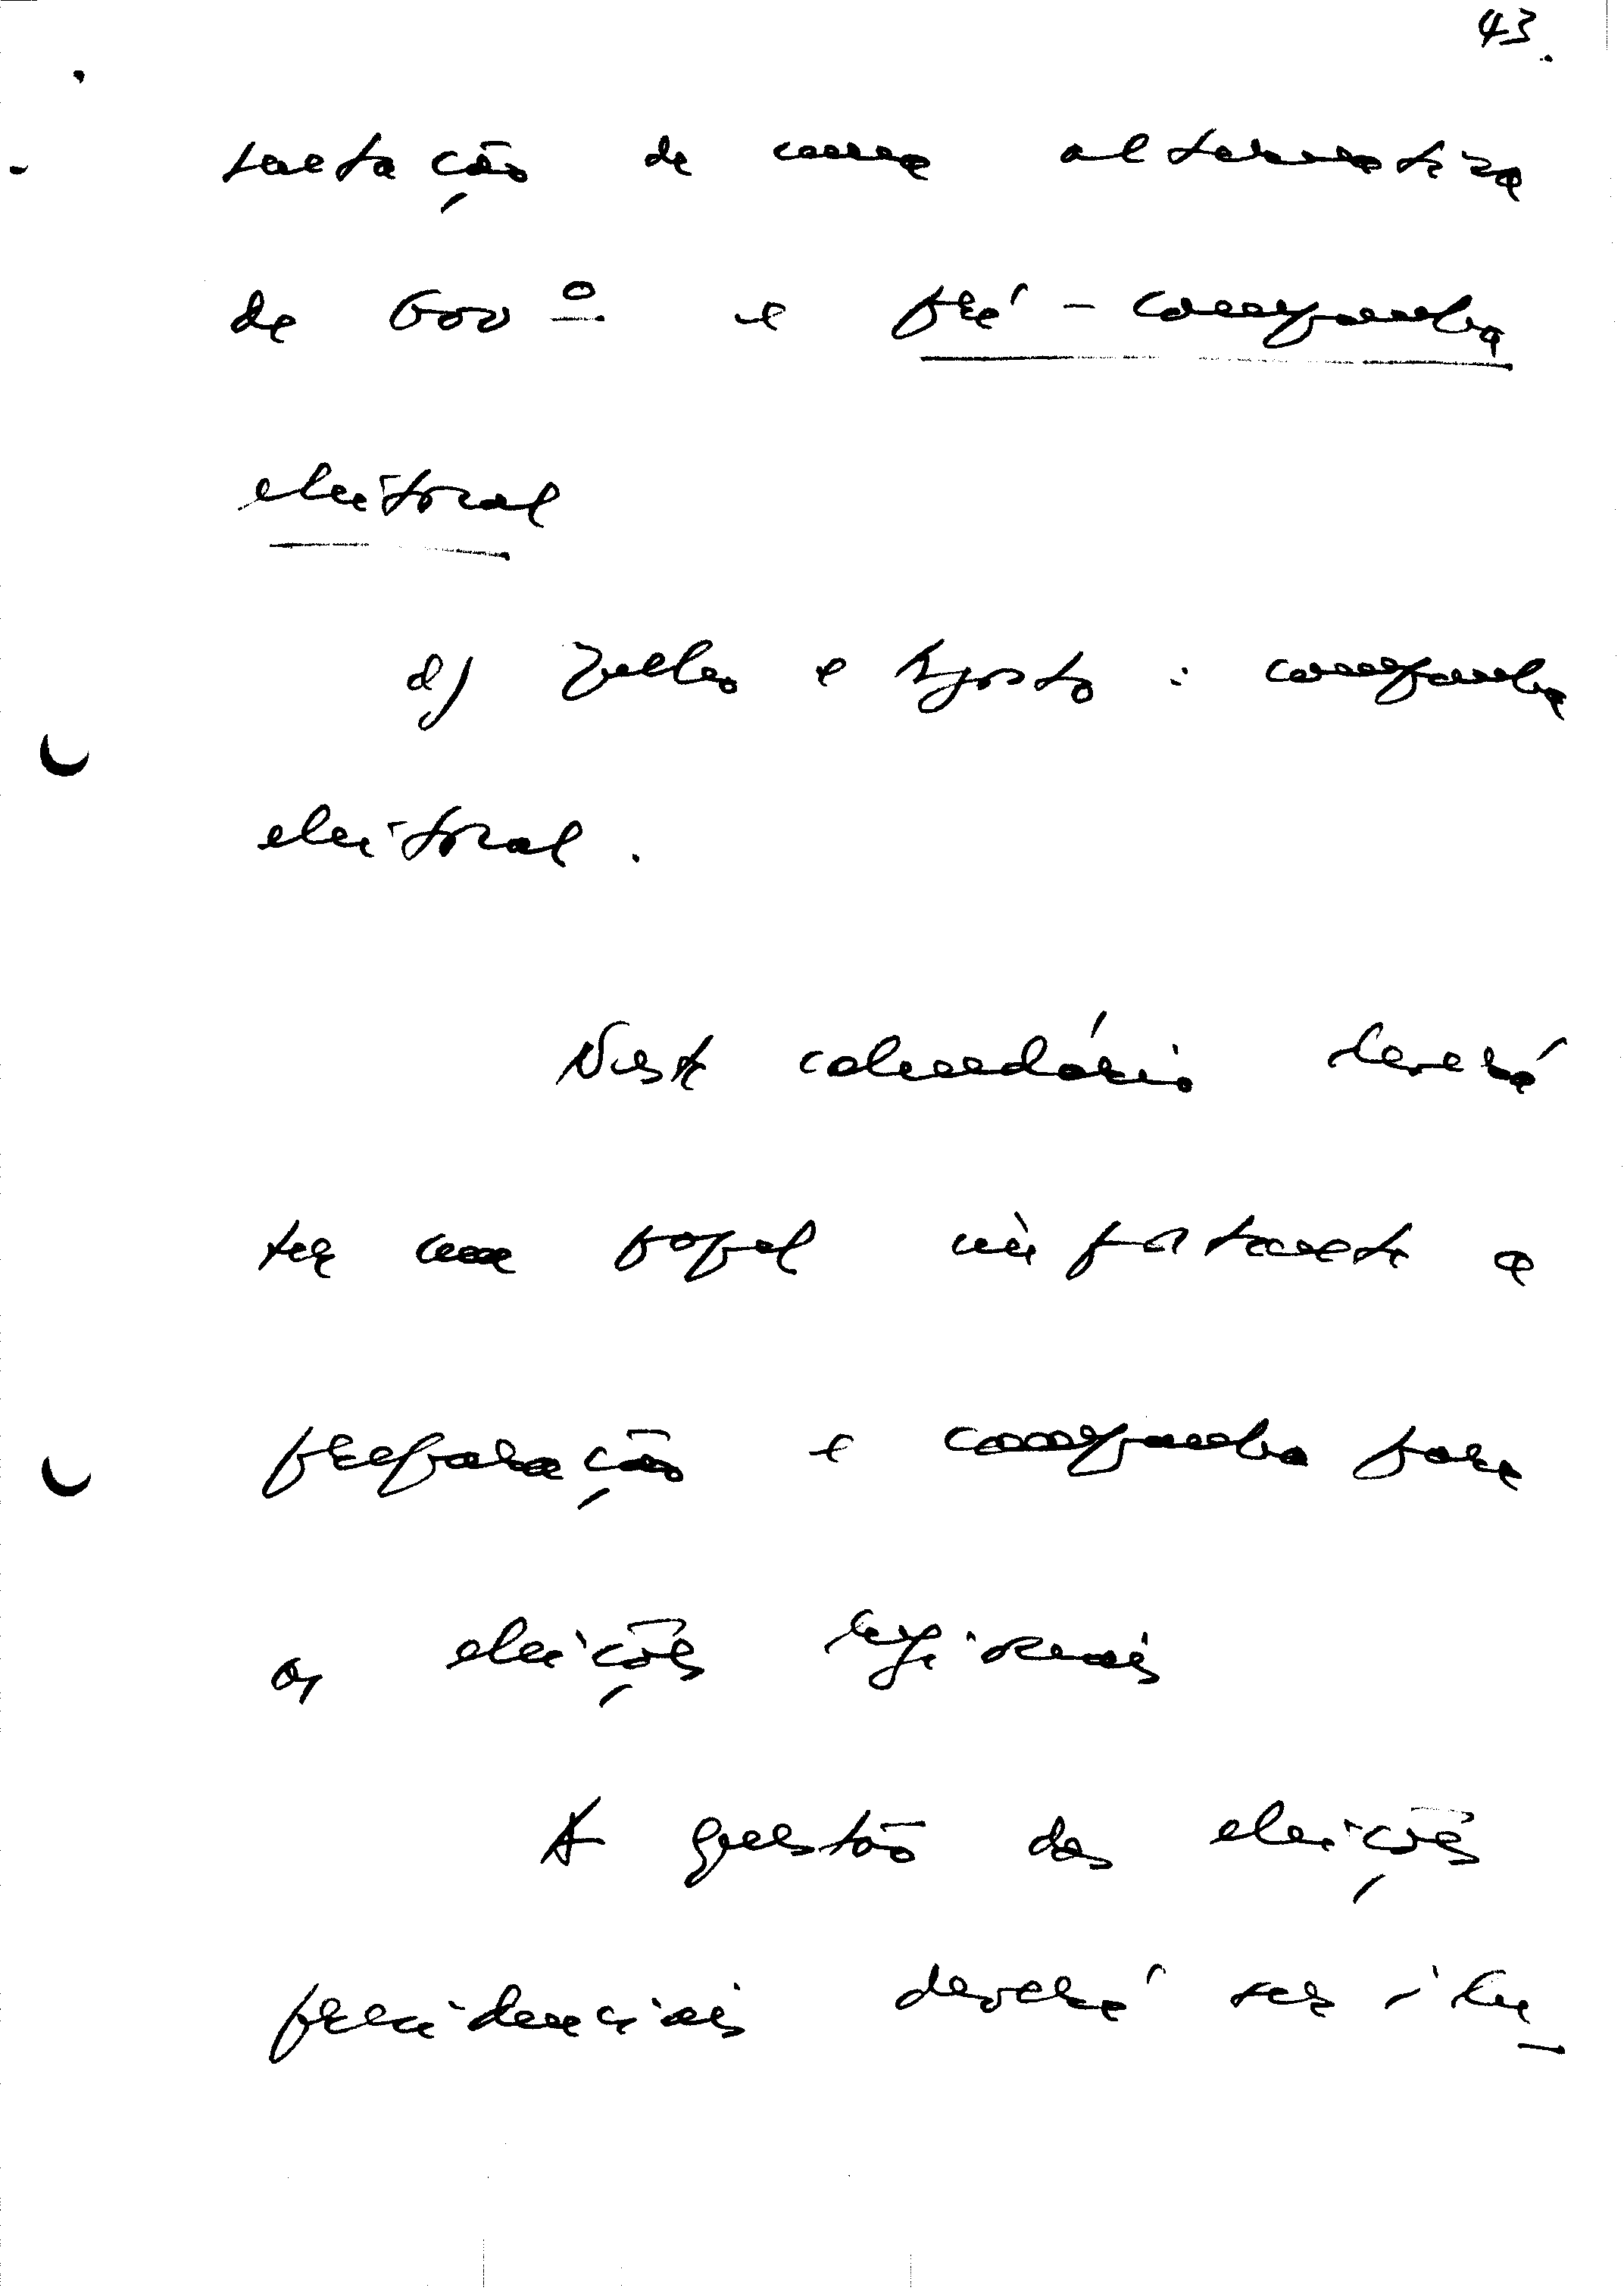 43.
tação de uma alternativa
de Govº e pré-campanha
eleitoral
d) Julho e Agosto : campanha
eleitoral.
Neste calendário deverá
ter um papel importante a
preparação e campanha para
as eleições regionais
A questão das eleições
presidenciais deverá ser